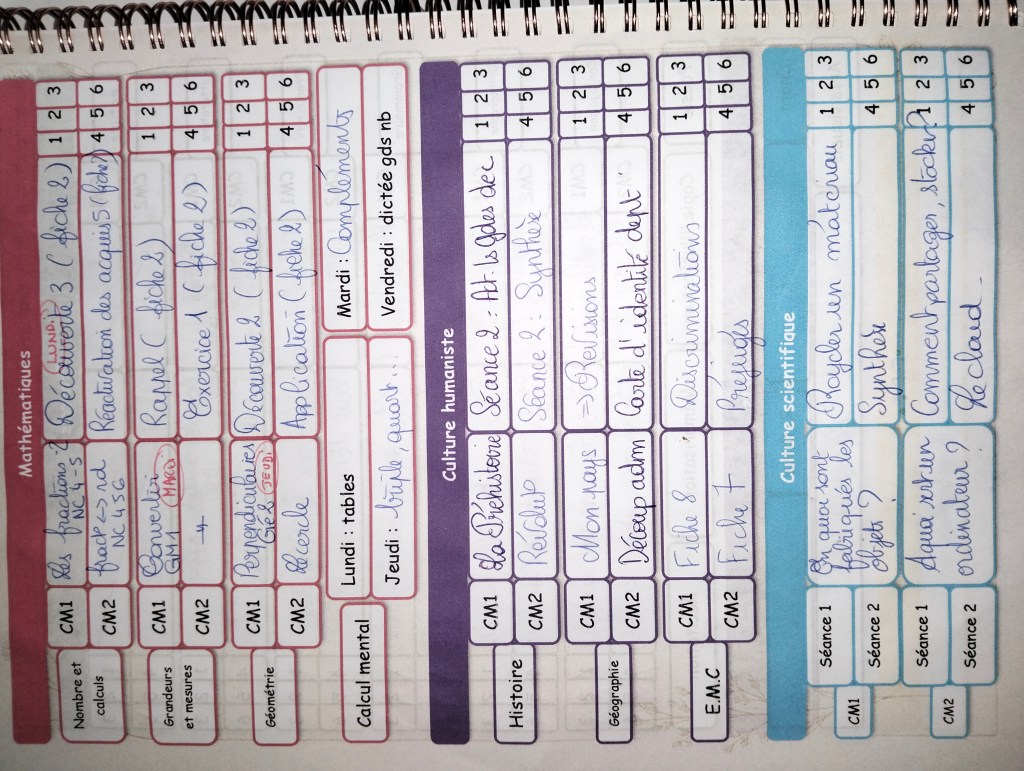 Mathématiques
(LUNDI)
Nombre et calculs
CM1
Les fractions 2
NC 4-5
Découverte 3 (fiche 2)
1 2 3
CM2
fract° <-> nd
NC 456
Réactivation des acquis 5 (fiche 2)
4 5 6
Grandeurs et mesures
CM1
Convertir
GM1
MARDI
Rappel (fiche 2)
1 2 3
CM2
Exercice 1 (fiche 2)
4 5 6
Géométrie
CM1
Perpendiculaires
JEUDI
Découverte 2 (fiche 2)
1 2 3
CM2
Le cercle
Application (fiche 2)
4 5 6
Calcul mental
Lundi : tables
Mardi : Compléments
Jeudi : triple, quart...
Vendredi : dictée gds nb
Culture humaniste
Histoire
CM1
La Préhistoire
Séance 2 : Act. ls gdes dec
1 2 3
CM2
Révolut°
Séance 2 : Synthèse
4 5 6
Géographie
CM1
Mon pays
=> Révisions
1 2 3
CM2
Découp adm
Carte d'identité dept
4 5 6
E.M.C
CM1
Fiche 8
Discriminations
1 2 3
CM2
Fiche 7
Préjugés
4 5 6
Culture scientifique
CM1
Séance 1
En quoi sont
fabriqués les
objets ?
Recycler un matériau
1 2 3
Séance 2
Synthèse
4 5 6
CM2
Séance 1
A quoi sert un
ordinateur ?
Comment partager, stocker ?
1 2 3
Séance 2
Le cloud
4 5 6